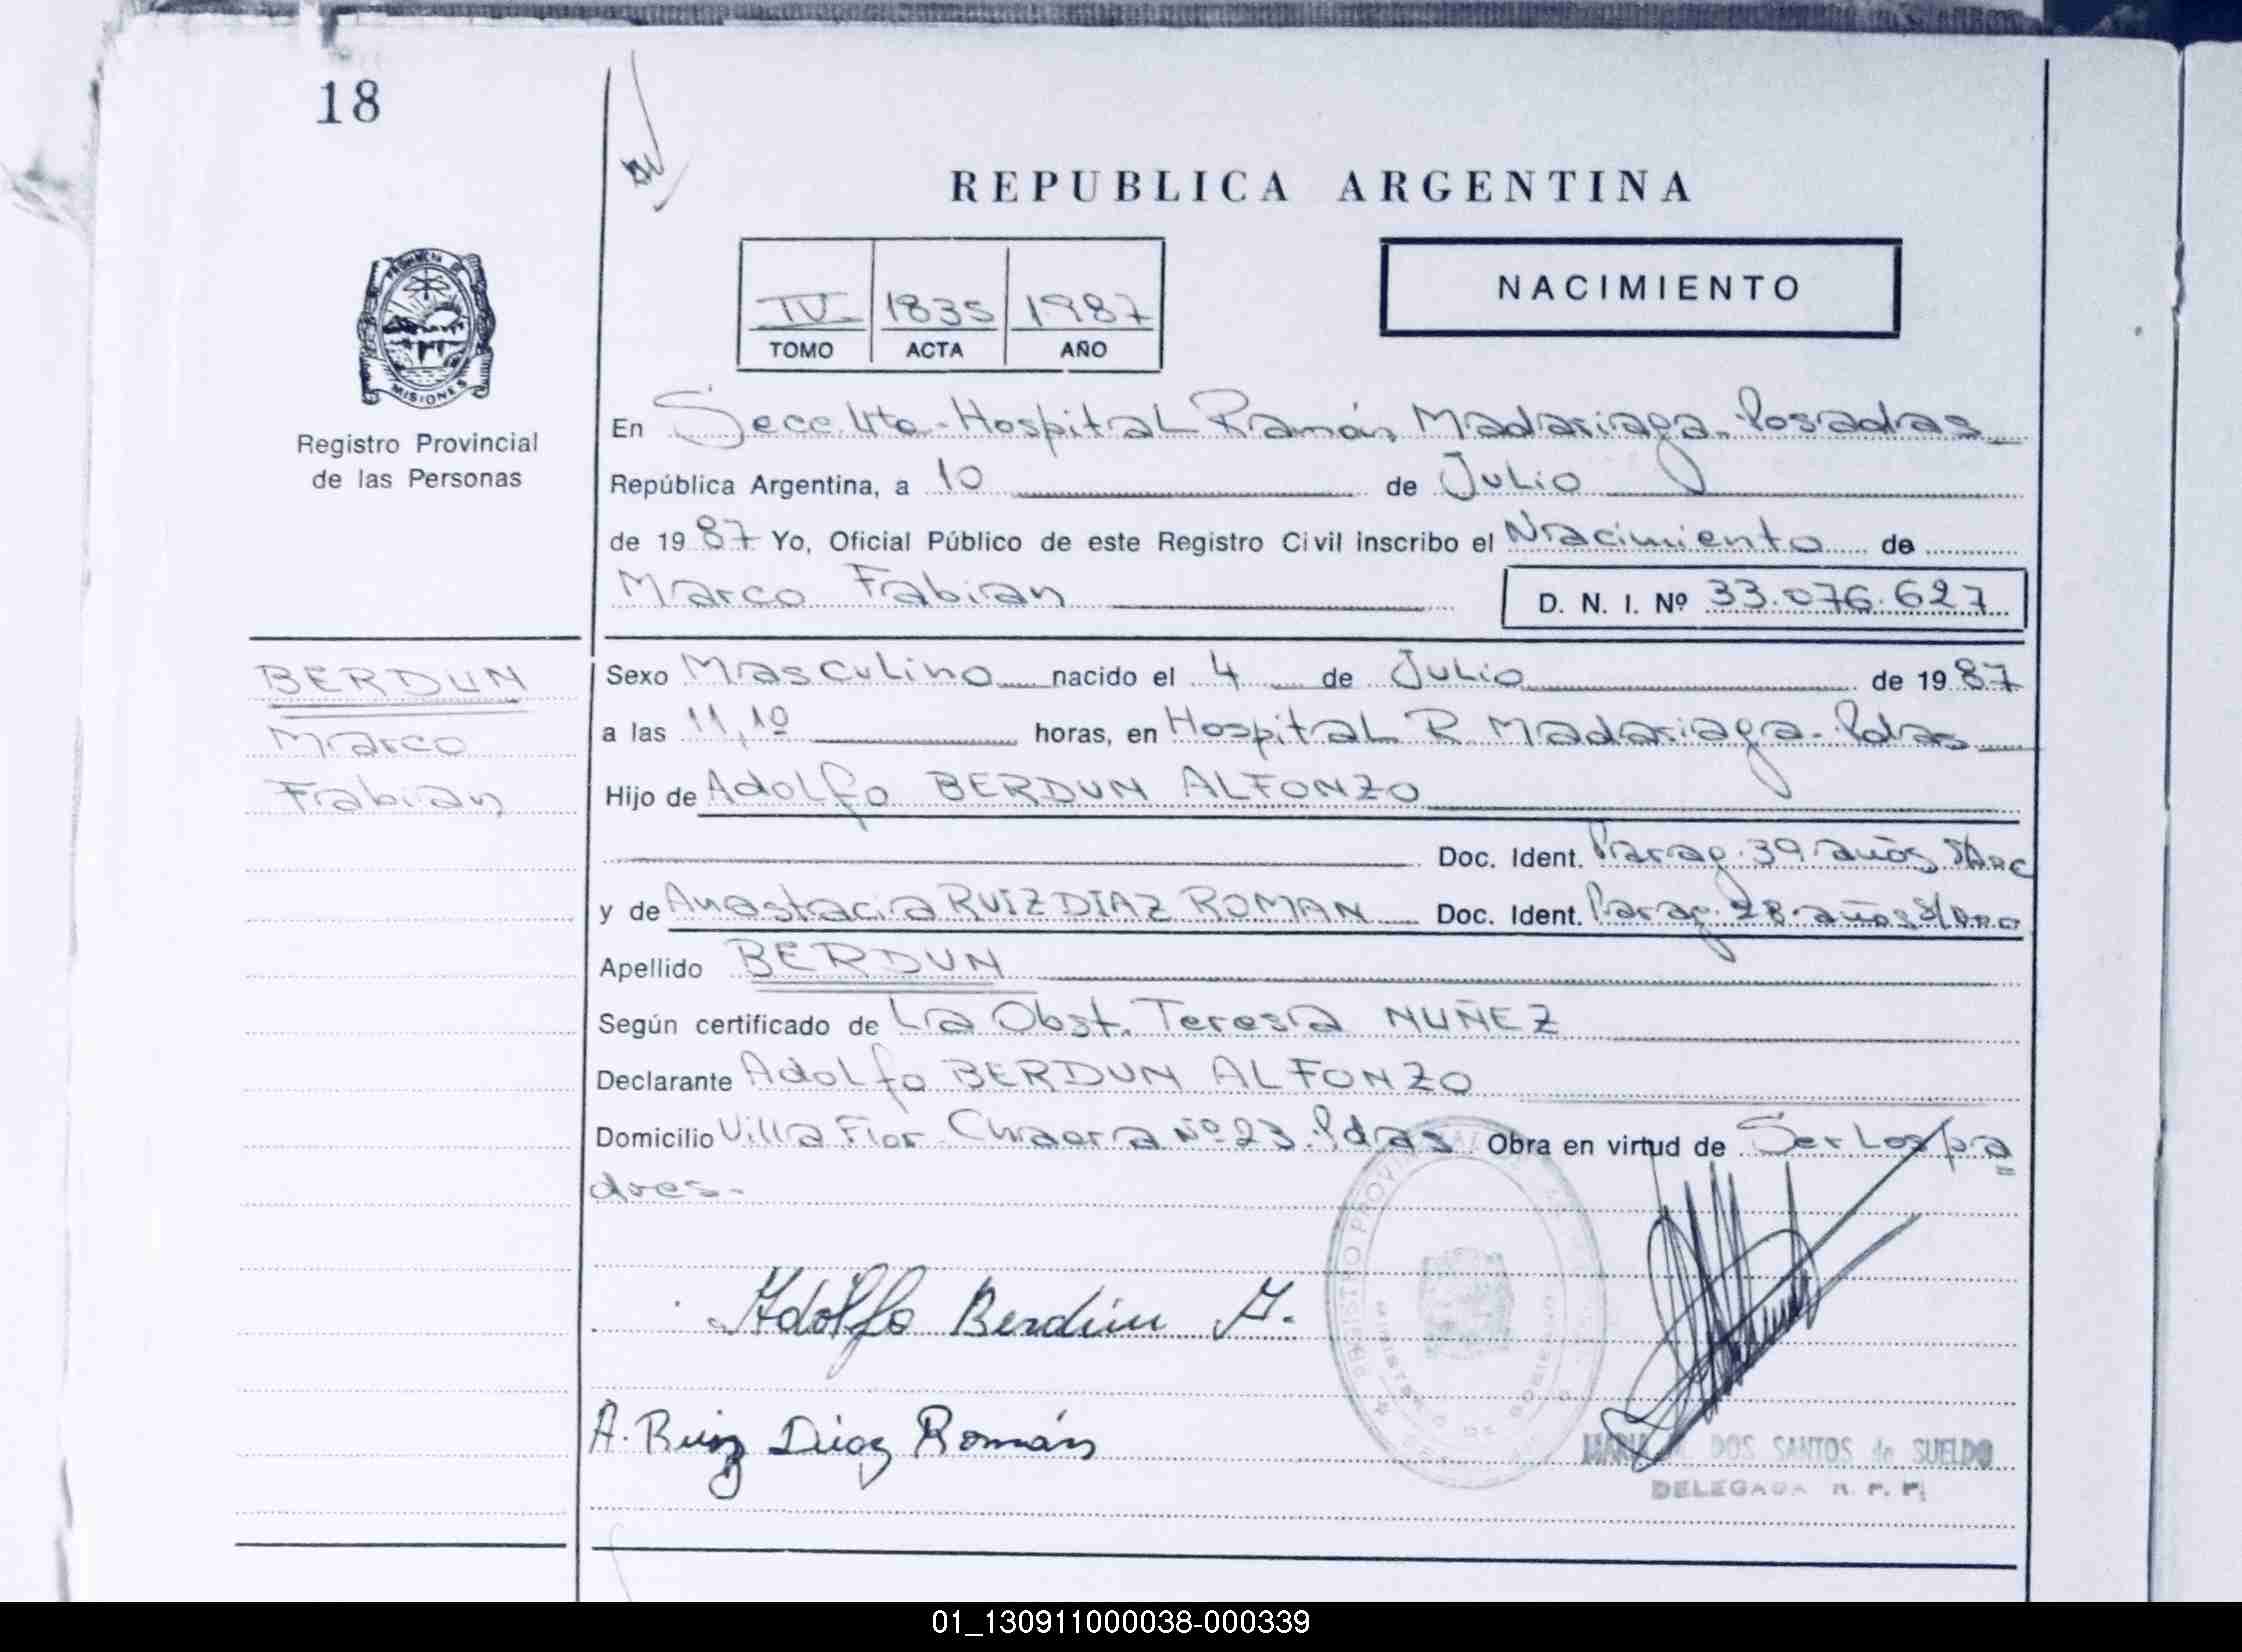 18
REPUBLICA ARGENTINA
IV 1835 1987
TOMO ACTA AÑO
NACIMIENTO
PROVINCIA DE
MISIONES
Registro Provincial
de las Personas
En Secc. 4ta - Hospital Ramón Madariaga - Posadas
República Argentina, a 10 de Julio
de 1987 Yo, Oficial Público de este Registro Civil inscribo el Nacimiento de
Marco Fabian D. N. I. Nº 33.076.627
BERDUN
Marco
Fabian
Sexo Masculino nacido el 4 de Julio de 1987
a las 11,10 horas, en Hospital R. Madariaga - Pdas
Hijo de Adolfo BERDUN ALFONZO
Doc. Ident. Parag. 39 años
y de Anastacia RUIZ DIAZ ROMAN Doc. Ident. Parag. 28 años
Apellido BERDUN
Según certificado de La Obst. Teresa NUÑEZ
Declarante Adolfo BERDUN ALFONZO
Domicilio Villa Flor Chacra Nº 23. Pdas Obra en virtud de Ser Los pa
dres.-
Adolfo Berdún A.
A. Ruiz Diaz Román
REGISTRO PROVINCIAL
MINISTERIO DE GOBIERNO
MARIA DOS SANTOS de SUELDO
DELEGADA R. P. P.
01_130911000038-000339